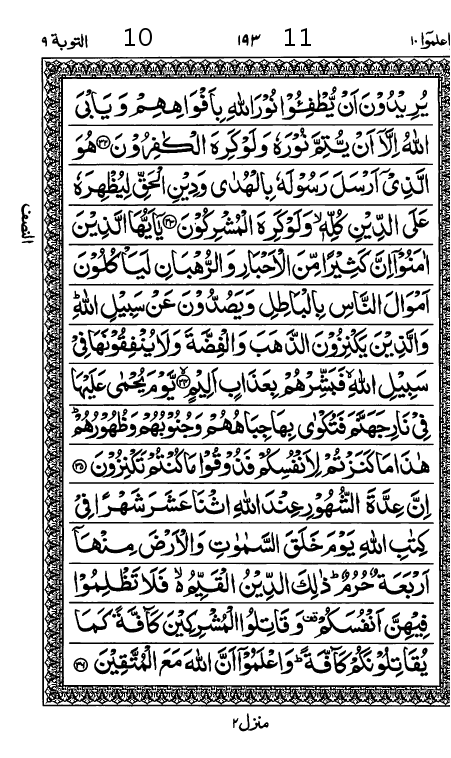 اعلموٓا ۱۰ 11 ۱۹۳ 10 التوبة ۹
يُرِيْدُوْنَ اَنْ يُّطْفِـُٔوْا نُوْرَ اللّٰهِ بِاَفْوَاهِهِمْ وَ يَاْبَى
اللّٰهُ اِلَّاۤ اَنْ يُّتِمَّ نُوْرَهٗ وَ لَوْ كَرِهَ الْكٰفِرُوْنَ ﴿۳۲﴾ هُوَ
الَّذِيْۤ اَرْسَلَ رَسُوْلَهٗ بِالْهُدٰى وَ دِيْنِ الْحَقِّ لِيُظْهِرَهٗ
عَلَى الدِّيْنِ كُلِّهٖ ۙ وَ لَوْ كَرِهَ الْمُشْرِكُوْنَ ﴿۳۳﴾ يٰۤاَيُّهَا الَّذِيْنَ
اٰمَنُوْۤا اِنَّ كَثِيْرًا مِّنَ الْاَحْبَارِ وَ الرُّهْبَانِ لَيَاْكُلُوْنَ
اَمْوَالَ النَّاسِ بِالْبَاطِلِ وَ يَصُدُّوْنَ عَنْ سَبِيْلِ اللّٰهِ ؕ
وَ الَّذِيْنَ يَكْنِزُوْنَ الذَّهَبَ وَ الْفِضَّةَ وَ لَا يُنْفِقُوْنَهَا فِيْ
سَبِيْلِ اللّٰهِ ۙ فَبَشِّرْهُمْ بِعَذَابٍ اَلِيْمٍ ﴿۳۴﴾ يَّوْمَ يُحْمٰى عَلَيْهَا
فِيْ نَارِ جَهَنَّمَ فَتُكْوٰى بِهَا جِبَاهُهُمْ وَ جُنُوْبُهُمْ وَ ظُهُوْرُهُمْ ؕ
هٰذَا مَا كَنَزْتُمْ لِاَنْفُسِكُمْ فَذُوْقُوْا مَا كُنْتُمْ تَكْنِزُوْنَ ﴿۳۵﴾
اِنَّ عِدَّةَ الشُّهُوْرِ عِنْدَ اللّٰهِ اثْنَا عَشَرَ شَهْرًا فِيْ
كِتٰبِ اللّٰهِ يَوْمَ خَلَقَ السَّمٰوٰتِ وَ الْاَرْضَ مِنْهَاۤ
اَرْبَعَةٌ حُرُمٌ ؕ ذٰلِكَ الدِّيْنُ الْقَيِّمُ ۙ۬ فَلَا تَظْلِمُوْا
فِيْهِنَّ اَنْفُسَكُمْ قف وَ قَاتِلُوا الْمُشْرِكِيْنَ كَآفَّةً كَمَا
يُقَاتِلُوْنَكُمْ كَآفَّةً ؕ وَ اعْلَمُوْۤا اَنَّ اللّٰهَ مَعَ الْمُتَّقِيْنَ ﴿۳۶﴾
النصف
منزل ۲